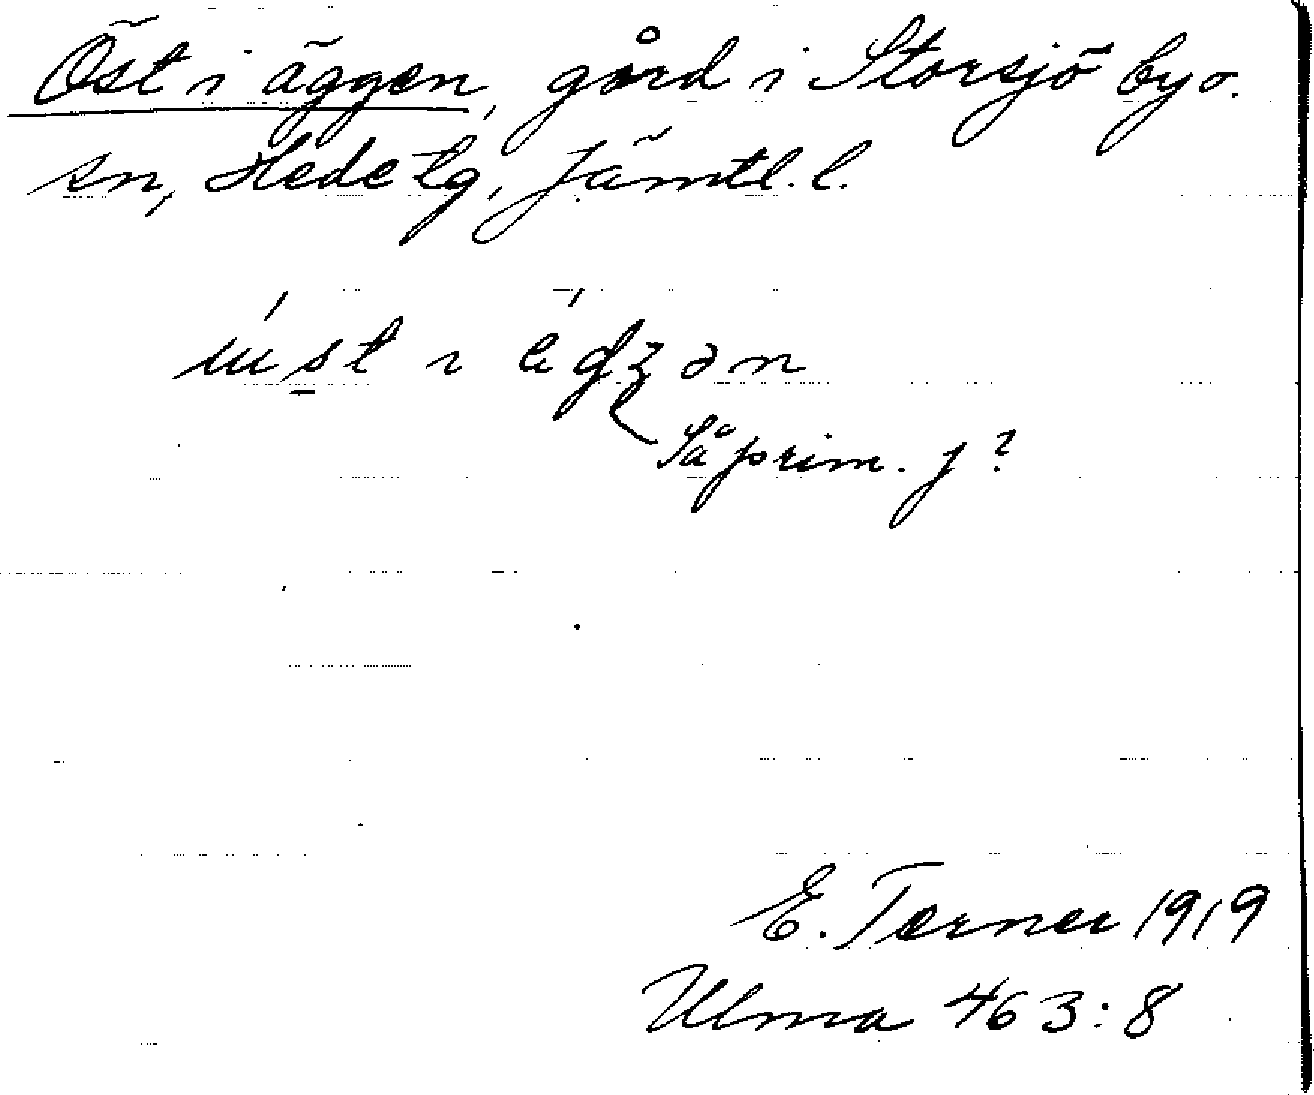 Öst i äggen, gård i Storsjö by o.
sn, Hede tg, Jämtl. l.
Så prim. j ?
E. Terner 1919
Ulma 463:8